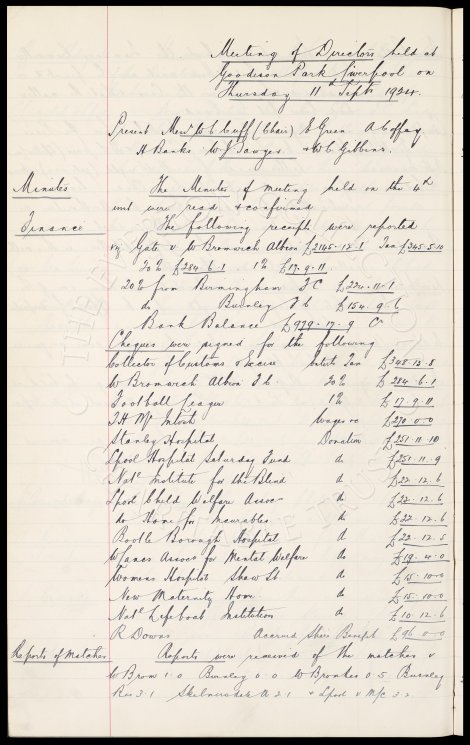 Meeting of Directors held at
Goodison Park Liverpool on
Thursday 11th Sept 1924.
Present Messrs W C Cuff (Chair) E Green A Coffey
H Banks W J Sawyer & W C Gibbins.
Minutes
The Minutes of meeting held on the 4th
inst were read & confirmed
Finance
The following receipts were reported
viz Gate v W Bromwich Albion £2145-12-1 Tax £345-5-10
20% £284-6-1 1% £17-9-11
20% from Birmingham F C £224-11-1
do Burnley F C £154-9-6
Bank Balance £979-17-9 Cr
Cheques were signed for the following
Collector of Customs & Excise Entertts Tax £348-12-8
W Bromwich Albion F C. 20% £284-6-1
Football League 1% £17-9-11
T H McIntosh Wages &c £270-0-0
Stanley Hospital Donation £251-11-10
Lpool Hospital Saturday Fund do £251-11-9
Natl Institute for the Blind do £22-12-6
Lpool Child Welfare Assoc do £22-12-6
do Home for Incurables do £22-12-6
Bootle Borough Hospital do £22-12-5
W Lancs Assocn for Mental Welfare do £19-4-0
Womans Hospital Shaw St do £15-10-0
New Maternity Home do £15-10-0
Natl Lifeboat Institution do £10-12-6
R Downs Accrued Share Benefit £96-0-0
Reports of Matches
Reports were received of the matches v
W Brom 1.0 Burnley 0.0 W Bromwich 0.5 Burnley
Res 3.1 Skelmersdale A 2.1 & Lpool v M/c 3.2.